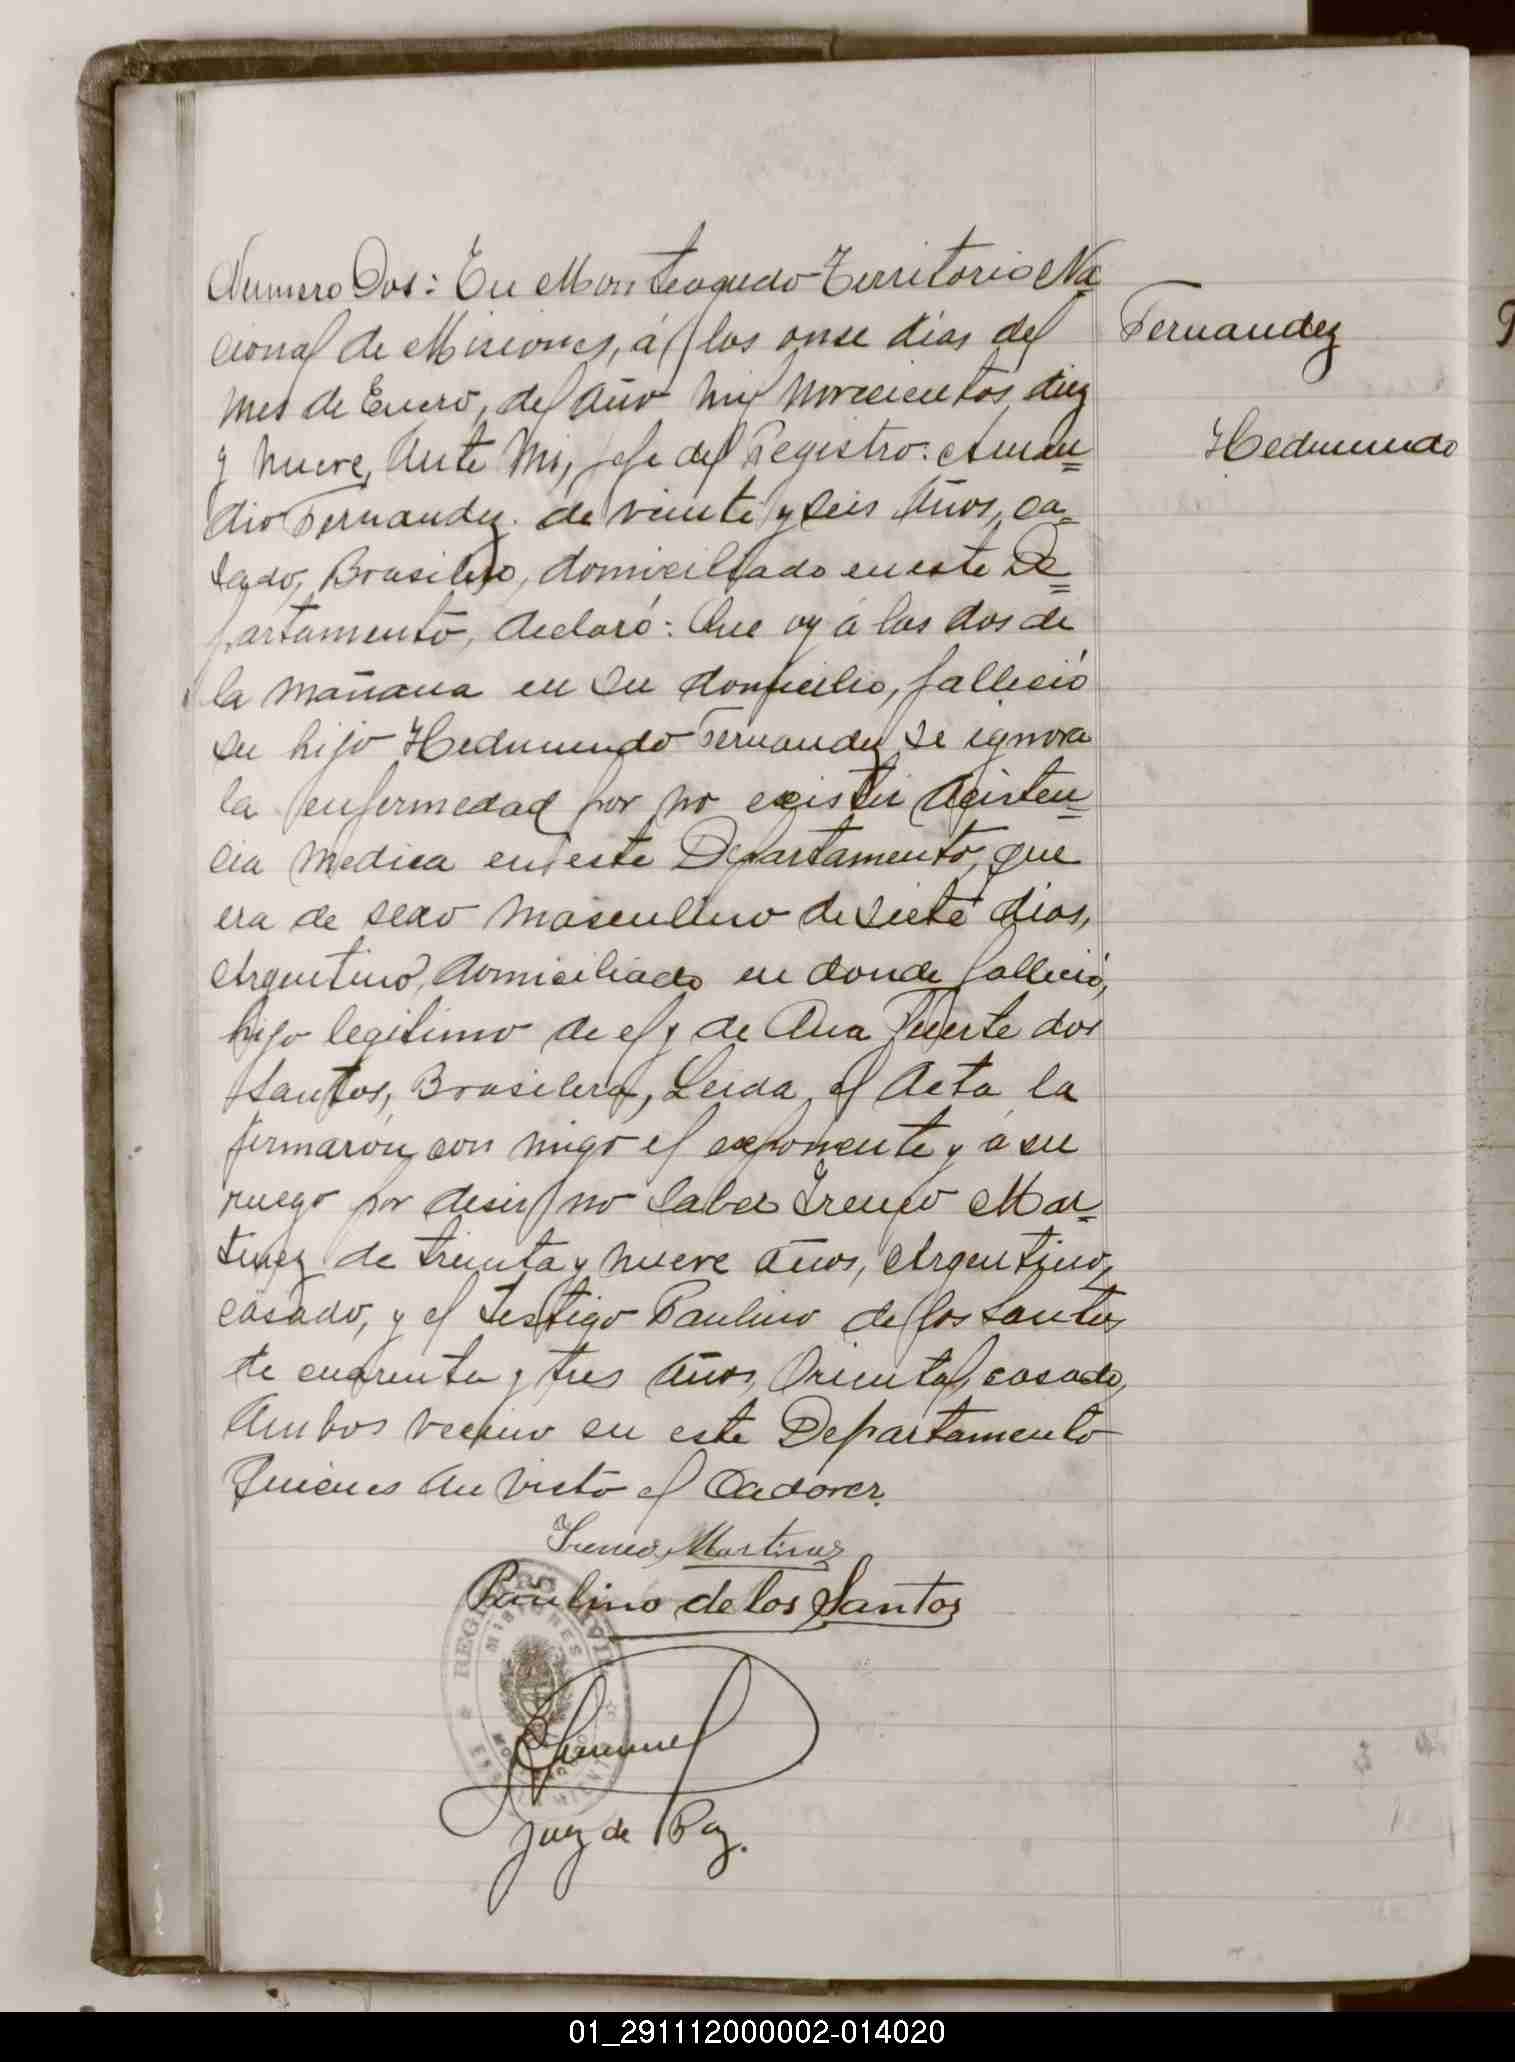 Numero Dos: En Monteagudo Territorio Na=
cional de Misiones, á los onse dias del
mes de Enero, del Año mil novecientos diez
y nueve, Ante Mi, jefe del Registro: Aman=
dio Fernandez. de veinte y seis Años, ca=
sado, Brasilero, domiciliado en este De=
partamento, declaró: Que oy á las dos de
la mañana en su domicilio, fallesió
su hijo Hedmundo Fernandez, se ignora
la enfermedad por no existir Asisten=
cia medica en este Departamento, que
era de sexo masculino de siete dias,
Argentino, domiciliado en donde fallesió,
hijo legitimo de el y de Ana Fuerte dos
Santos, Brasilera, Leida el Acta la
firmarón con migo el exponente y á su
ruego por desir no saber Ireneo Mar=
tinez de treinta y nueve años, Argentino,
casado, y el testigo Paulino de los Santos
de cuarenta y tres Años, Oriental, casado,
Ambos vecino en este Departamento
Quienes An visto el Cadover.
Ireneo Martinez
Paulino de los Santos
Juez de Paz.
Fernandez
Hedmundo
REGISTRO CIVIL
MISIONES
01_291112000002-014020